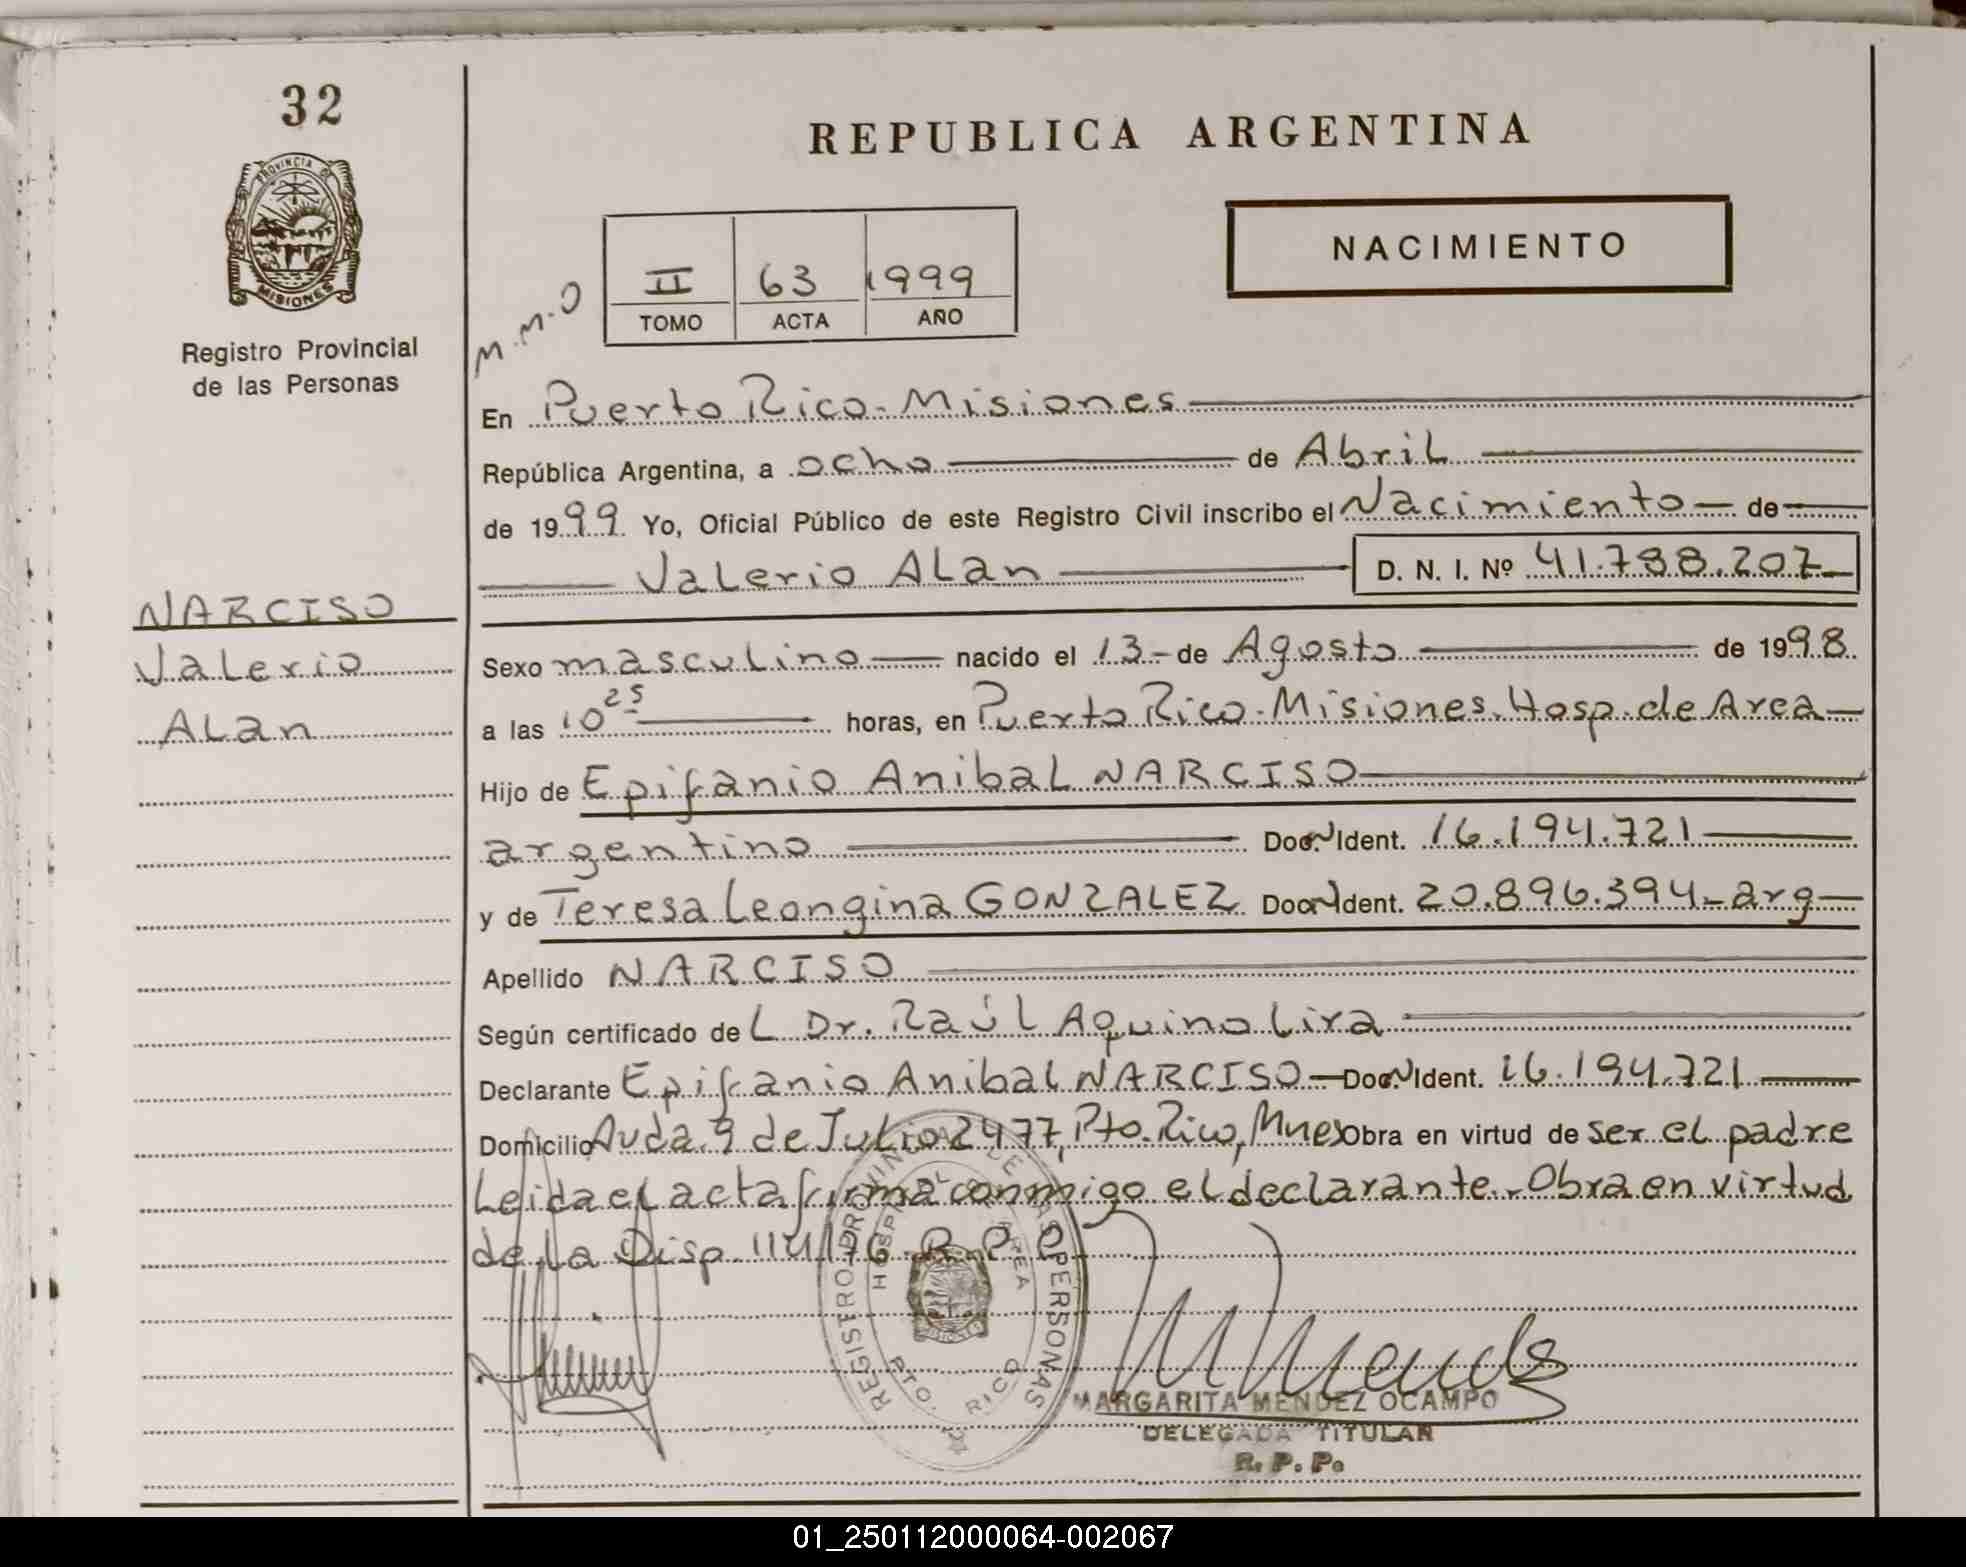 32
REPUBLICA ARGENTINA
PROVINCIA DE
MISIONES
Registro Provincial
de las Personas
M.M.O
II 63 1999
TOMO ACTA AÑO
NACIMIENTO
En Puerto Rico-Misiones
República Argentina, a ocho de Abril
de 1999 Yo, Oficial Público de este Registro Civil inscribo el Nacimiento de
Valerio ALan D. N. I. Nº 41.788.207
NARCISO
Valerio
ALan
Sexo mascuLino nacido el 13 de Agosto de 1998
a las 10 25 horas, en Puerto Rico-Misiones. Hosp. de Area
Hijo de Epifanio AnibaL NARCISO
argentino Doc. N Ident. 16.194.721
y de Teresa Leongina GONZALEZ Doc. N Ident. 20.896.394 arg
Apellido NARCISO
Según certificado de L Dr. RaúL Aquino Lira
Declarante Epifanio AnibaL NARCISO Doc. N Ident. 16.194.721
Domicilio Avda. 9 de JuLio 2477, Pto. Rico, Mnes Obra en virtud de ser eL padre
Leida eL acta firma conmigo eL decLarante. Obra en virtud
de La Disp. 114/76 R.P.P
REGISTRO PROVINCIAL DE LAS PERSONAS
HOSPITAL DE AREA
PTO. RICO
MARGARITA MENDEZ OCAMPO
DELEGADA TITULAR
R. P. P.
01_250112000064-002067